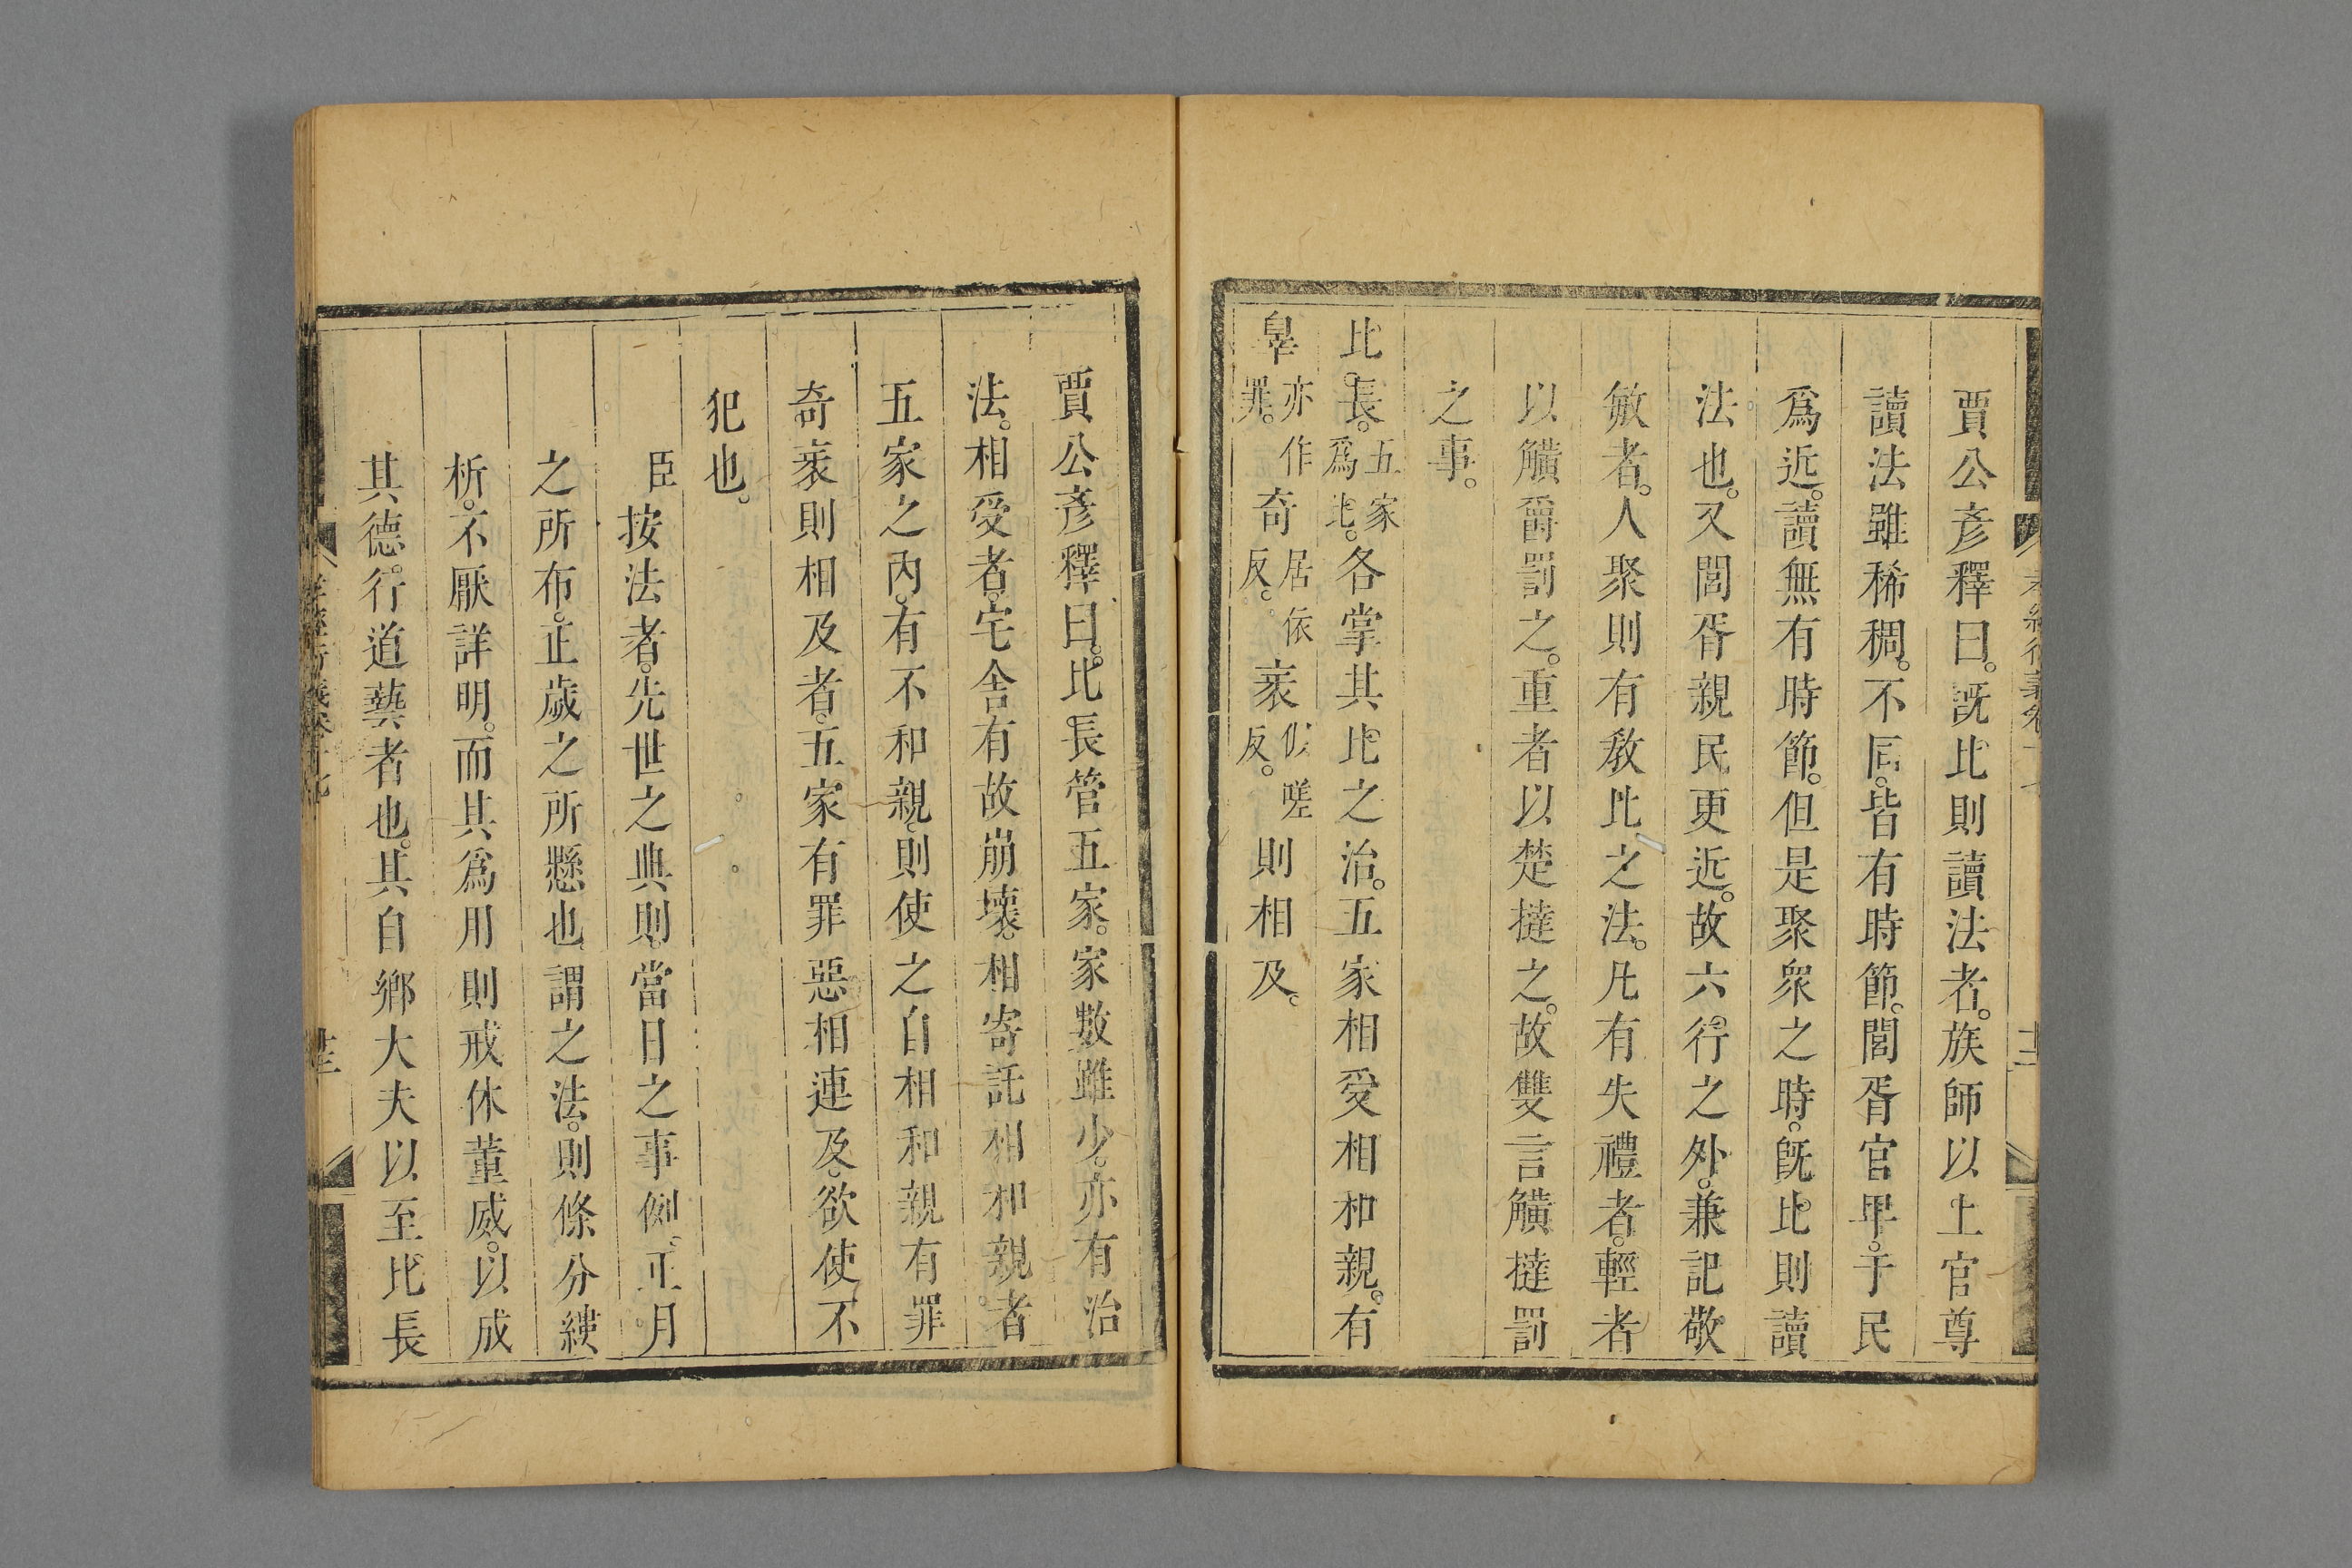 賈公彥釋曰。旣比則讀法者。族師以上官尊
讀法雖稀稠。不同。皆有時節。閭胥官卑。于民
爲近。讀無有時節。但是聚衆之時。旣比則讀
法也。又閭胥親民更近。故六行之外。兼記敬
敏者。人聚則有教比之法。凡有失禮者。輕者
以觵爵罰之。重者以楚撻之。故雙言觵撻罰
之事。
比長。五家爲比。各掌其比之治。五家相受相和親。有
辠亦作罪。奇居依反。衺似嗟反。則相及。
賈公彥釋曰。比長管五家。家數雖少。亦有治
法。相受者。宅舍有故崩壞。相寄託相和親者
五家之內。有不和親。則使之自相和親有罪
奇衺則相及者。五家有罪惡相連及。欲使不
犯也。
臣按法者。先世之典則。當日之事例。正月
之所布。正歲之所懸也謂之法。則條分縷
析。不厭詳明。而其爲用則戒休董威。以成
其德。行道藝者也。其自鄉大夫以至比長